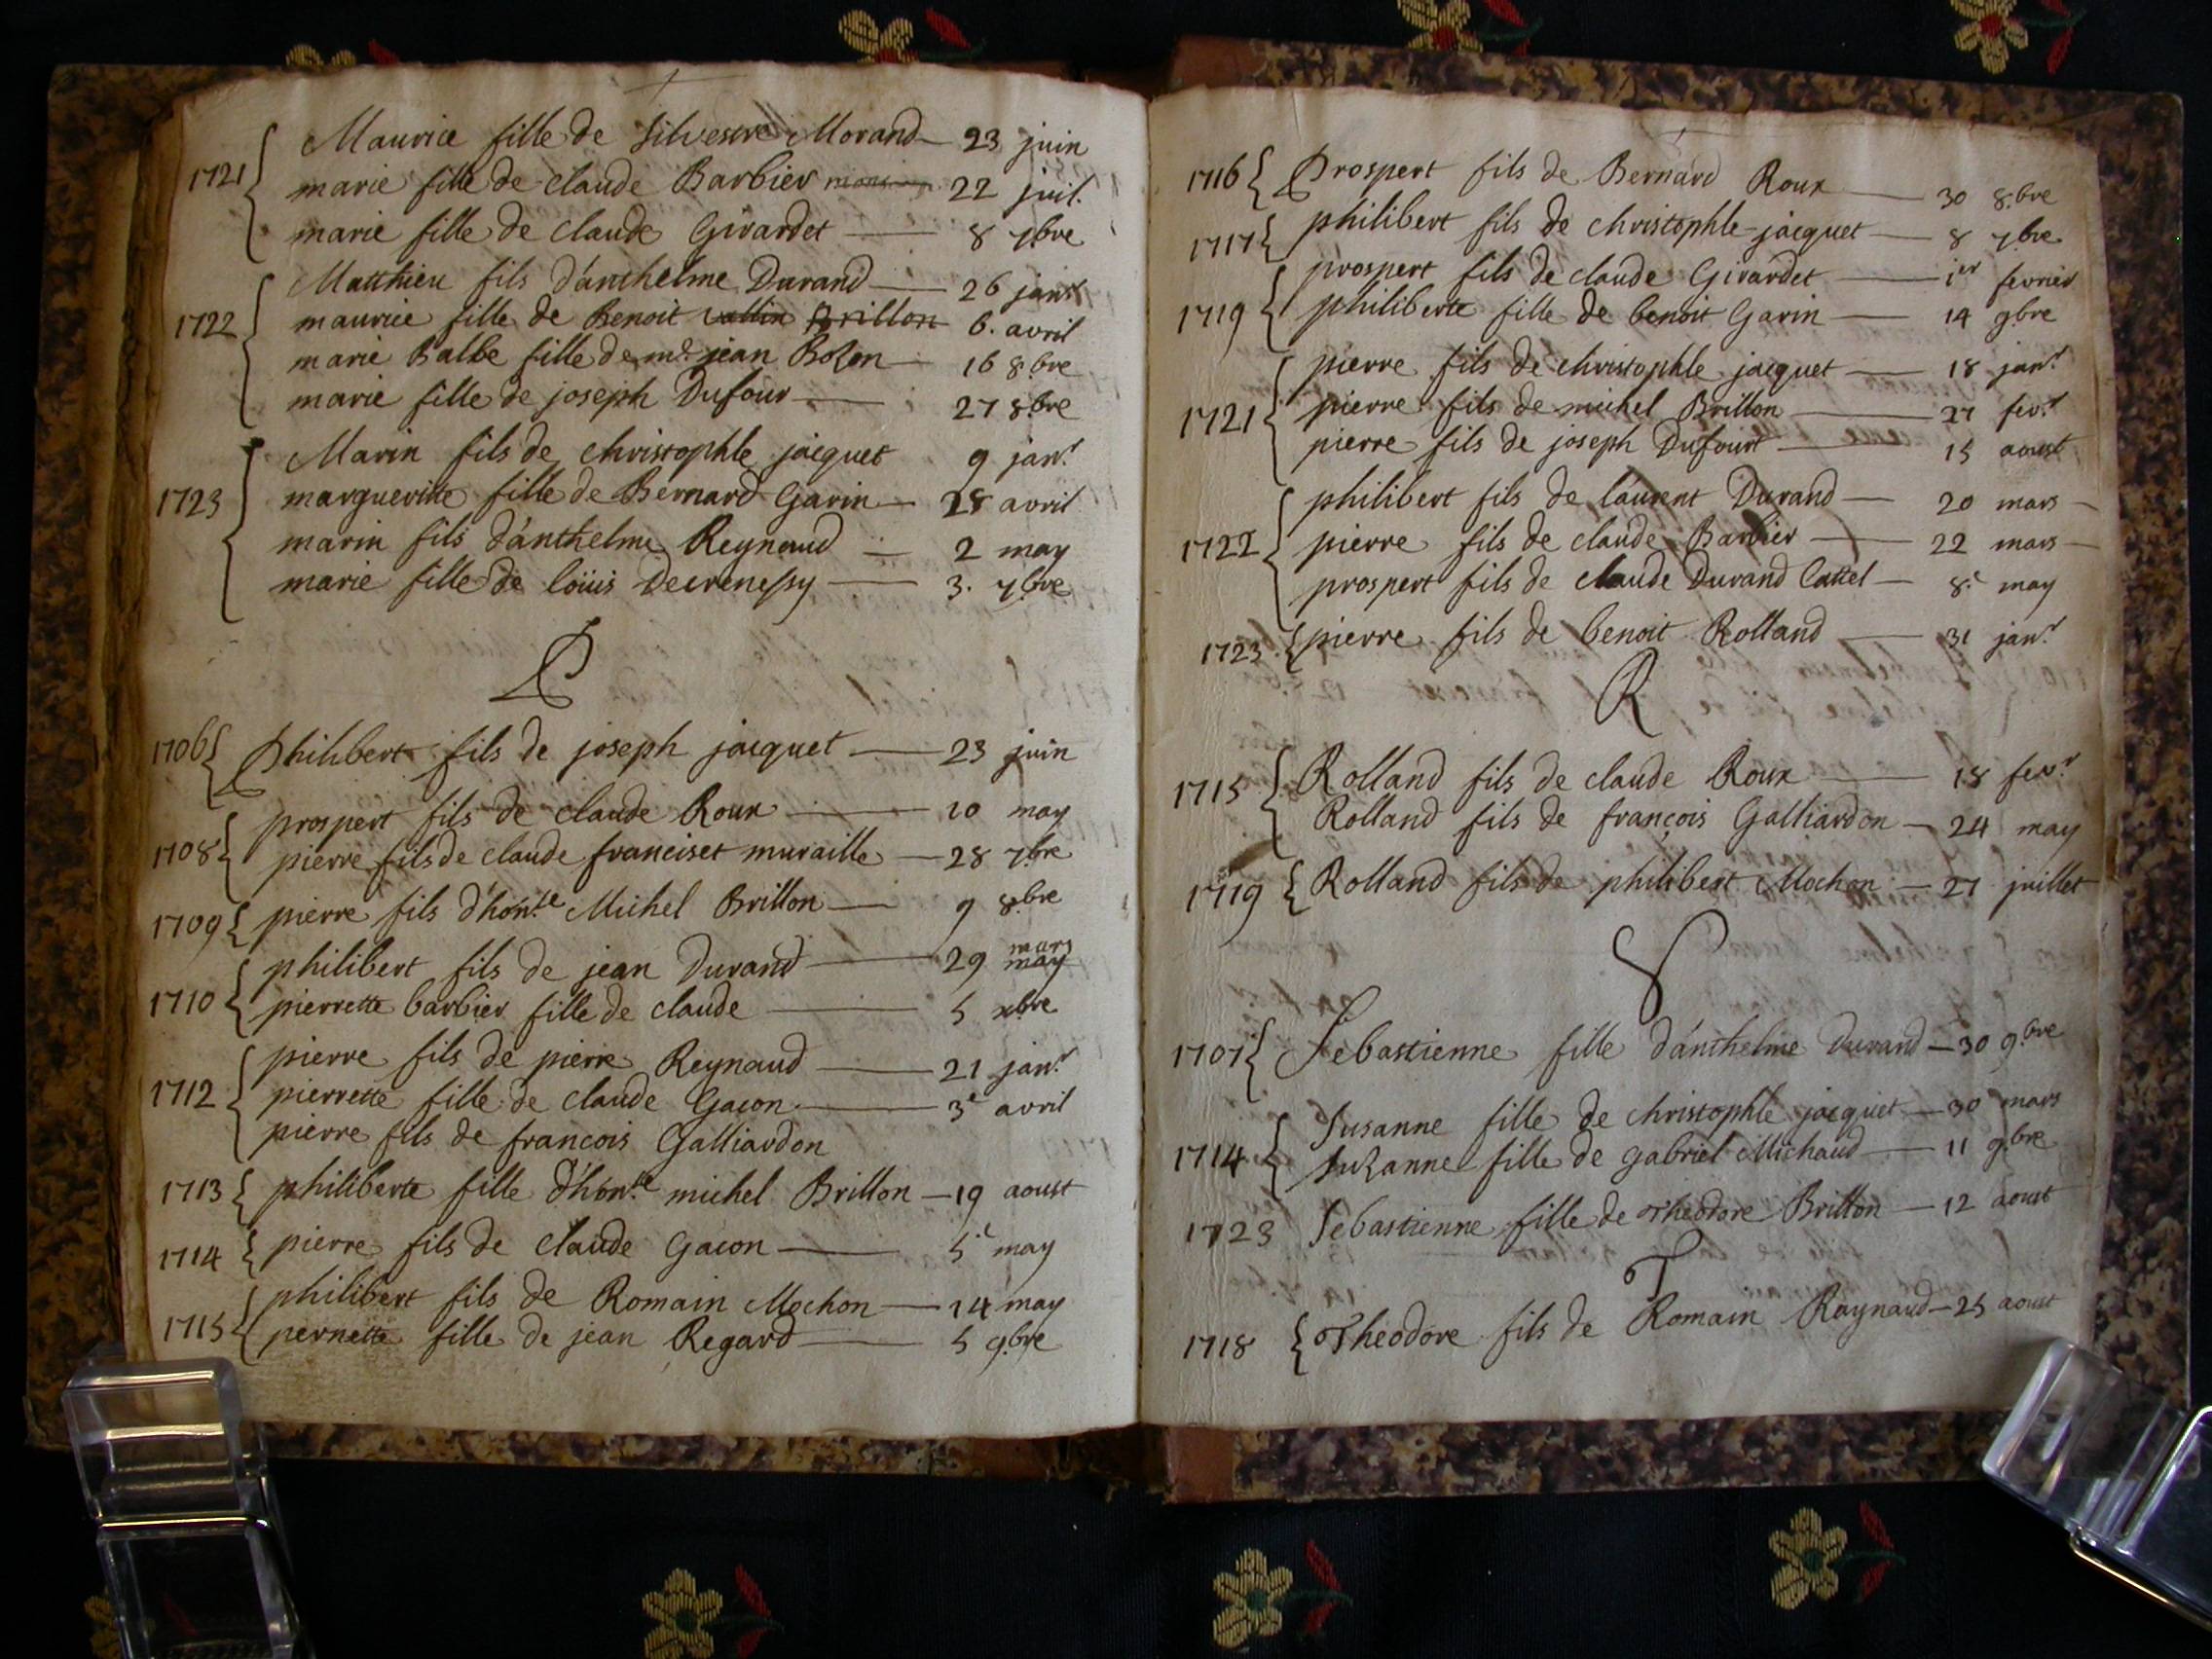 1721 { Maurice fille de silvestre Morand — 23 juin
marie fille de claude Barbier 22 juil.
marie fille de claude Girardet — 8 7.bre
1722 { Matthieu fils d'anthelme Durand — 26 janr
maurice fille de Benoit vallin Brillon 6. avril
marie Balbe fille de md. jean Bolen — 16 8.bre
marie fille de joseph Dufour — 27 8.bre
1723 { Marin fils de christophle jacquet 9 janr
margueritte fille de Bernard Garin — 28 avril
marin fils d'anthelme Reynaud — 2 may
marie fille de loüis Decrenessy — 3. 7.bre
P
1706 { Philibert fils de joseph jacquet — 23 juin
1708 { prospert fils de claude Roux — 10 may
pierre fils de claude franciset muraille — 28 7.bre
1709 { pierre fils d'hon.te Michel Brillon — 9 8.bre
1710 { philibert fils de jean Durand — 29 mars may
pierrette barbier fille de claude — 5 xbre
1712 { pierre fils de pierre Reynaud — 21 janr
pierrette fille de claude Gacon — 3e avril
pierre fils de francois Galliardon
1713 { philiberte fille d'hon.te michel Brillon — 19 aoust
1714 { pierre fils de claude Gacon — 5e may
1715 { philibert fils de Romain Mochon — 14 may
pernette fille de jean Regard — 5 9.bre
1716 { Prospert fils de Bernard Roux — 30 8.bre
1717 { philibert fils de christophle jacquet — 8 7.bre
1719 { prospert fils de claude Girardet — 1er fevrier
philiberte fille de benoit Garin — 14 9.bre
1721 { pierre fils de christophle jacquet — 18 janr
pierre fils de michel Brillon — 27 fevr
pierre fils de joseph Dufourt — 15 aoust
1722 { philibert fils de laurent Durand — 20 mars —
pierre fils de claude Barbier — 22 mars —
prospert fils de claude Durand Cattel — 8.e may
1723 { pierre fils de benoit Rolland — 31 janr
R
1715 { Rolland fils de claude Roux — 18 fevr
Rolland fils de françois Galliardon — 24 may
1719 { Rolland fils de philibert Mochon — 27 juillet
S
1707 { Sebastienne fille d'anthelme Durand — 30 9.bre
1714 { Susanne fille de christophle jacquet — 30 mars
suzanne fille de gabriel Michaud — 11 9.bre
1723 Sebastienne fille de Theodore Brillon — 12 aoust
T
1718 { Theodore fils de Romain Raynaud — 25 aoust